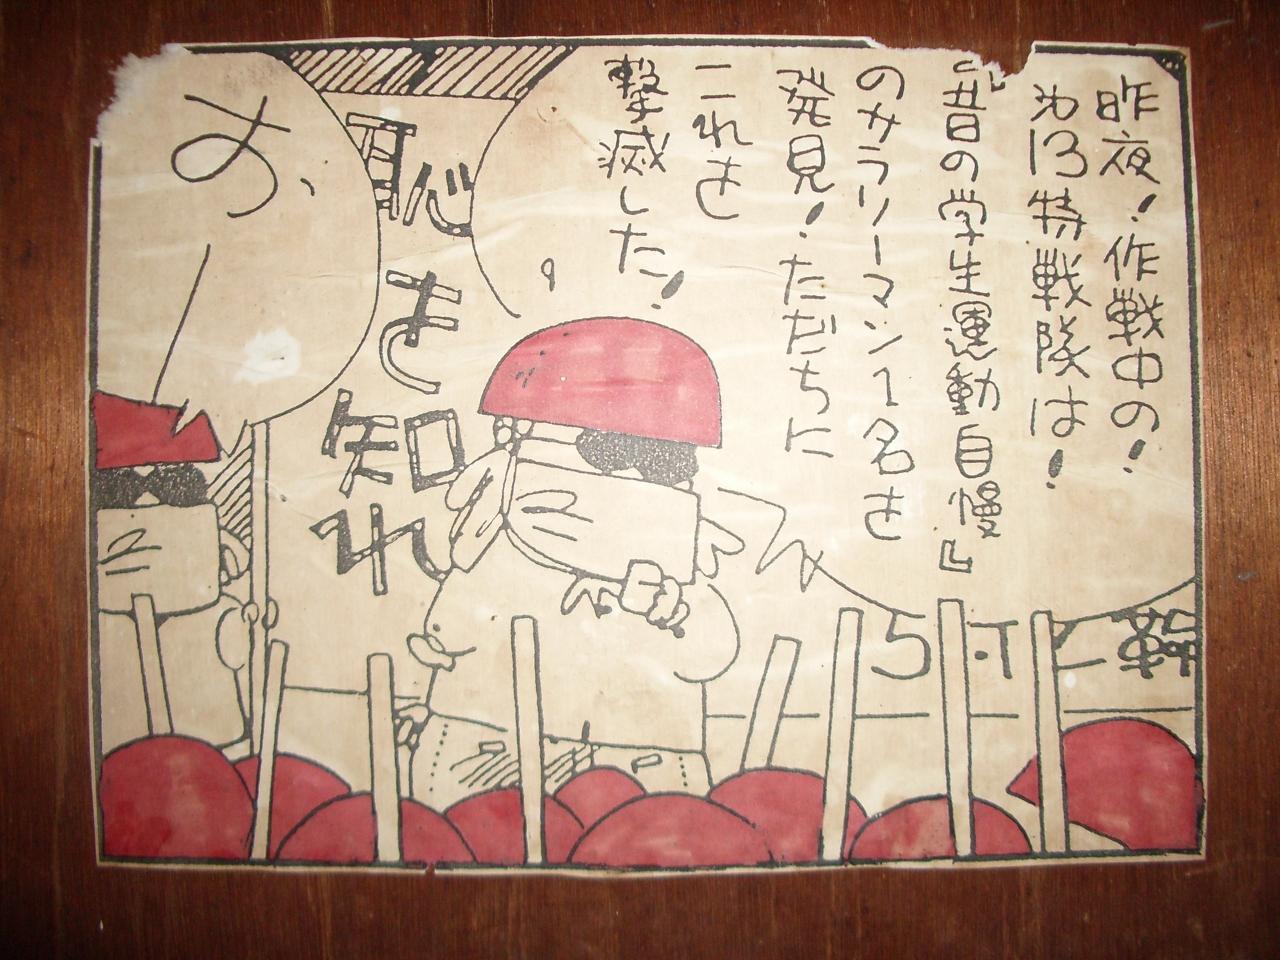 昨夜!作戦中の!
㐧13特戦隊は!
『昔の学生運動自慢』
のサラリーマン1名を
発見!ただちに
これを
撃滅した!
恥を知れ
お、